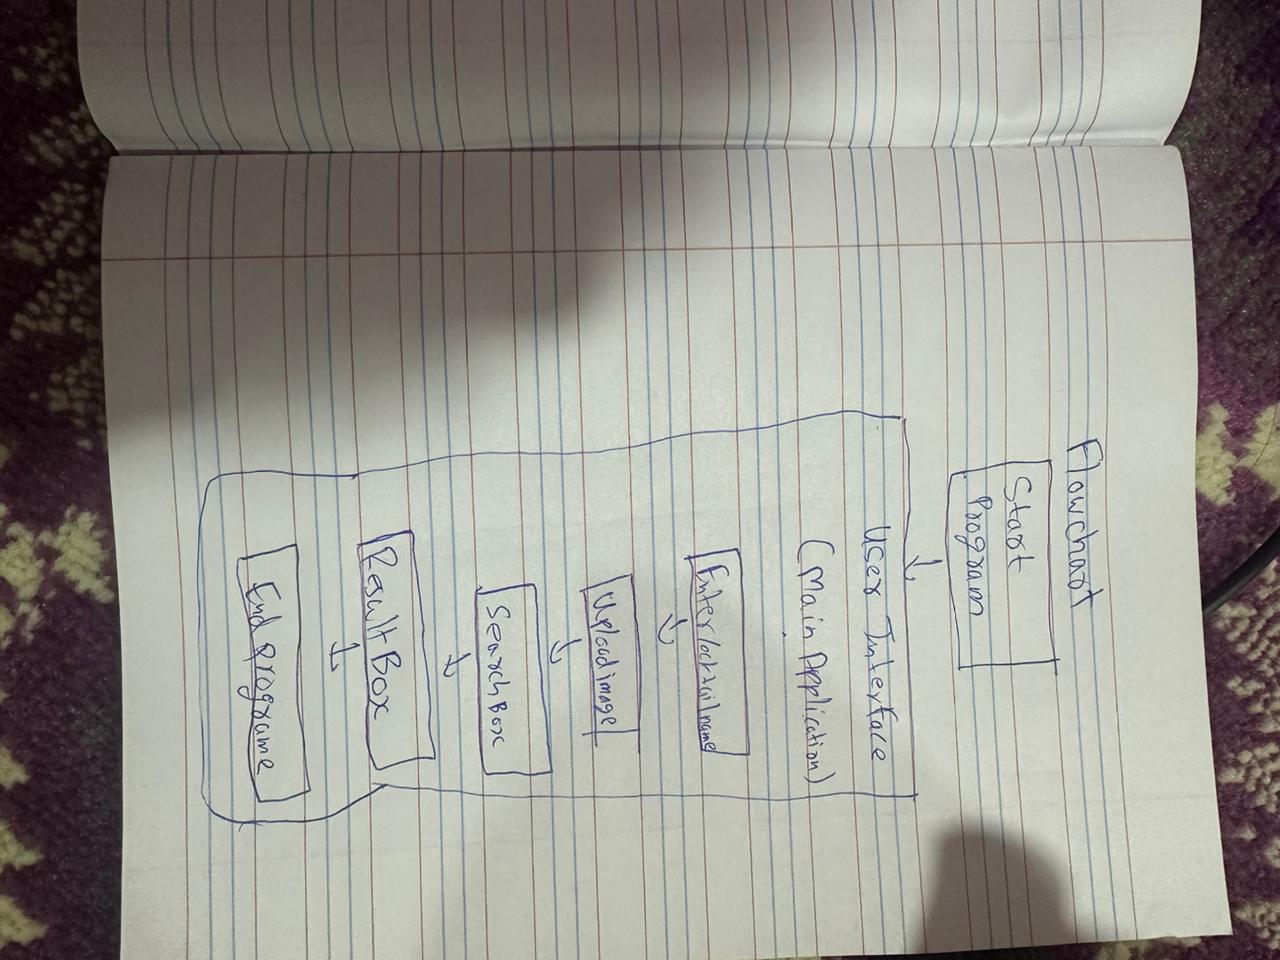 Flowchart
Start
Program
User Interface
(Main Application)
Enter cocktail name
Upload image
Search Box
Result Box
End programe